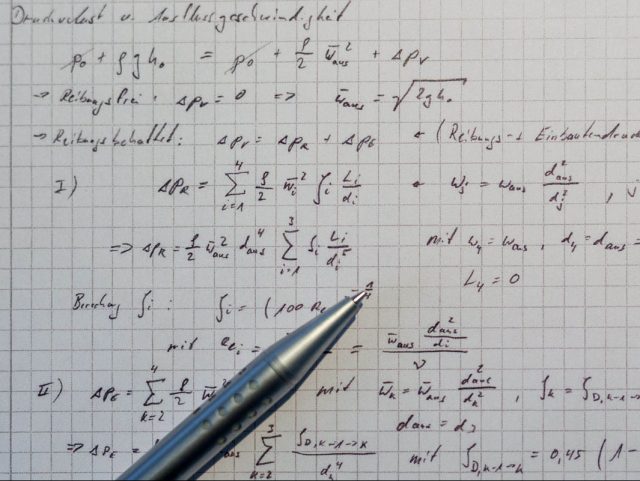 Druckverlust u. Ausflussgeschwindigkeit
p₀ + ρ g h₀ = p₀ + ρ/2 w̄²ₐᵤₛ + Δp_V
→ Reibungsfrei: Δp_V = 0 => w̄_aus = √(2gh₀)
→ Reibungsbehaftet: Δp_V = Δp_R + Δp_E ← (Reibungs- + Einbautendruck
I) Δp_R = Σ_{i=1}^{4} ρ/2 w̄_i² ζ_i L_i/d_i ← w_j = w_aus d²_aus/d_j² , j
=> Δp_R = ρ/2 w̄²_aus d⁴_aus Σ_{i=1}^{3} ζ_i L_i/d_i⁵ mit w₄ = w_aus , d₄ = d_aus =
L₄ = 0
ζ_i : ζ_i = (100 Re
mit Re_i = = w̄_aus d²_aus/d_i / ν
II) Δp_E = Σ_{k=2}^{4} ρ/2 w̄ mit w̄_k = w̄_aus d²_aus/d_k² , ζ_k = ζ_{D,k-1→k}
d_aus = d₃
=> Δp_E = aus Σ_{k=2}^{3} ζ_{D,k-1→k}/d_k⁴ mit ζ_{D,k-1→k} = 0,45 (1 -